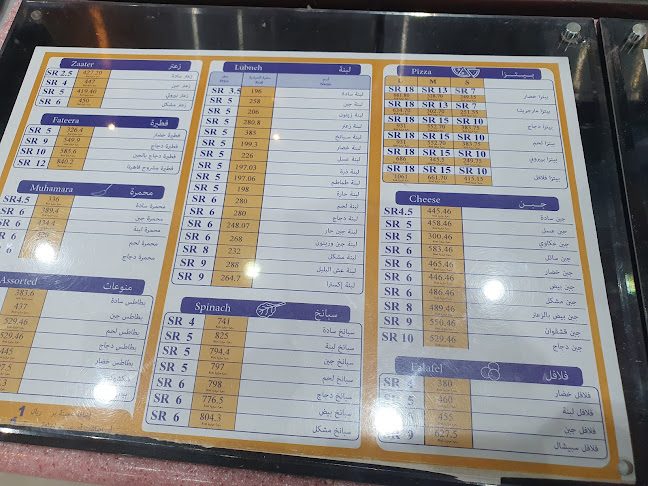 Zaater زعتر
SR 2.5 427.20 زعتر سادة
SR 4 447 زعتر جبن
SR 5 419.46 زعتر بيروتي
SR 6 450 زعتر مشكل
Fateera فطيرة
SR 5 326.4 فطيرة خضار
SR 9 549.0 فطيرة دجاج
SR 10 585.6 فطيرة دجاج بالجبن
SR 12 840.2 فطيرة
Muhamara محمرة
SR4.5 336 محمرة سادة
SR 6 389.4 محمرة جبن
SR 6 434.4 محمرة لبنة
SR 6 محمرة لحم
SR 6 محمرة دجاج
Assorted منوعات
383.6 بطاطس سادة
437 بطاطس جبن
529.46 بطاطس لحم
529.46 بطاطس دجاج
445 بطاطس خضار
Lubneh لبنة
SR 3.5 196 لبنة سادة
SR 5 258 لبنة جبن
SR 5 206 لبنة زيتون
SR 5 280.8 لبنة زعتر
SR 5 385 لبنة سبانخ
SR 5 199.3 لبنة خضار
SR 5 226 لبنة عسل
SR 5 197.03 لبنة ذرة
SR 5 197.06 لبنة طماطم
SR 5 198 لبنة حارة
SR 6 280 لبنة لحم
SR 6 280 لبنة دجاج
SR 6 248.07 لبنة جبن حار
SR 6 268 لبنة جبن وزيتون
SR 8 232 لبنة مشكل
SR 9 288 لبنة عش البلبل
SR 9 264.7 لبنة إكسترا
Spinach سبانخ
SR 4 741 سبانخ سادة
SR 5 825 سبانخ لبنة
SR 5 794.4 سبانخ جبن
SR 6 797 سبانخ لحم
SR 6 798 سبانخ دجاج
SR 6 776.5 سبانخ بيض
SR 6 804.3 سبانخ مشكل
Pizza بيتزا
L M S
SR 18 SR 13 SR 7 بيتزا خضار
SR 18 SR 13 SR 7 بيتزا مارجريتا
SR 18 SR 15 SR 10 بيتزا دجاج
SR 18 SR 15 SR 10 بيتزا لحم
SR 18 SR 15 SR 10 بيتزا بيروني
SR 18 SR 15 SR 10 بيتزا فلافل
Cheese جبن
SR4.5 445.46 جبن سادة
SR 5 458.46 جبن عسل
SR 5 300.46 جبن حلاوى
SR 6 583.46 جبن سائل
SR 6 465.46 جبن خضار
SR 6 446.46 جبن بيض
SR 6 486.46 جبن مشكل
SR 8 489.46 جبن بيض بالزعتر
SR 9 550.46 جبن قشقوان
SR 10 529.46 جبن دجاج
Falafel فلافل
SR 4 380 فلافل خضار
SR 5 460 فلافل لبنة
455 فلافل جبن
SR 9 627.5 فلافل سبيشال